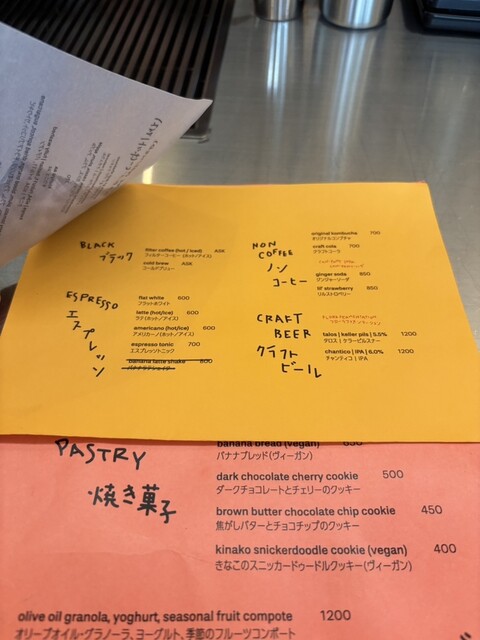 BLACK
ブラック
filter coffee (hot / iced) ASK
フィルターコーヒー (ホット/アイス)
cold brew ASK
コールドブリュー
ESPRESSO
エスプレッソ
flat white 600
フラットホワイト
latte (hot/ice) 600
ラテ(ホット/アイス)
americano (hot/ice) 600
アメリカーノ(ホット/アイス)
espresso tonic 700
エスプレッソトニック
banana latte shake 800
バナナラテシェイク
NON
COFFEE
ノン
コーヒー
original kombucha 700
オリジナルコンブチャ
craft cola 700
クラフトコーラ
ginger soda 850
ジンジャーソーダ
lil' strawberry 850
リルストロベリー
CRAFT
BEER
クラフト
ビール
talos | keller pils | 5.5% 1200
タロス | ケラーピルスナー
shantico | IPA | 6.0% 1200
チャンティコ | IPA
PASTRY
焼き菓子
banana bread (vegan) 650
バナナブレッド(ヴィーガン)
dark chocolate cherry cookie 500
ダークチョコレートとチェリーのクッキー
brown butter chocolate chip cookie 450
焦がしバターとチョコチップのクッキー
kinako snickerdoodle cookie (vegan) 400
きなこのスニッカードゥードルクッキー(ヴィーガン)
olive oil granola, yoghurt, seasonal fruit compote 1200
オリーブオイル・グラノーラ、ヨーグルト、季節のフルーツコンポート